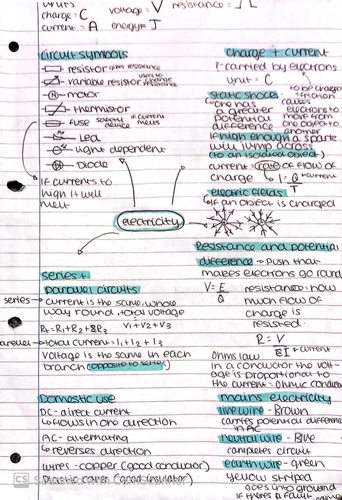 units
charge = C voltage = V resistance =
current = A energy = J
circuit symbols
resistor gives resistance
variable resistor used to change resistance
motor
thermistor
fuse safety device if current melts
LED
Light dependent
Diode
if currents to
high it will
melt
electricity
charge + current
carried by electrons
unit = C
static shocks to be charged
= friction
one has causes
a greater electrons to
potential move from
difference one object to
another
if high enough a spark
will jump across
(to an isolated object)
current: rate of flow of
charge I = Q ← current
T
electric fields
if an object is charged
Resistance and potential
difference → push that
makes electrons go round
V = E resistance: how
Q much flow of
charge is
resisted
R = V
I ← current
ohms law
in a conductor the volt-
age is proportional to
the current - ohmic conductor
series +
parallel circuits
series → current is the same, whole
way round, total voltage
V1 + V2 + V3
Rt = R1 + R2 + R3
→ total current = I1 + I2 + I3
voltage is the same in each
branch (opposite to series)
Domestic use
DC - direct current
flows in one direction
AC - alternating
reverses direction
wires - copper (good conductor)
plastic cover (good insulator)
mains electricity
live wire - Brown
carries potential difference
in AC
neutral wire - Blue
completes circuit
earth wire - green
yellow striped
goes into ground
if there's a fault
CS